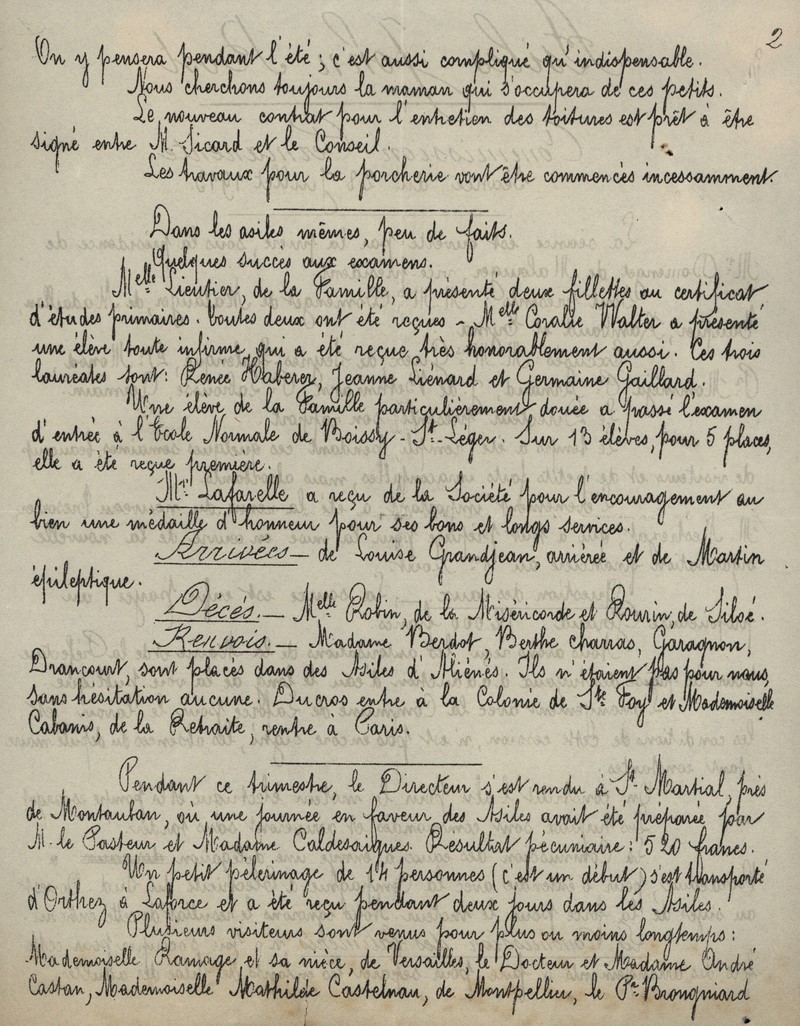 2
On y pensera pendant l'été ; c'est aussi compliqué qu'indispensable.
Nous cherchons toujours la maman qui s'occupera de ces petits.
Le nouveau contrat pour l'entretien des toitures est prêt à être
signé entre M. Sicard et le Conseil.
Les travaux pour la porcherie vont être commencés incessamment.
Dans les asiles mêmes, peu de faits.
Quelques succès aux examens.
Melle Lieutier, de la Famille, a présenté deux fillettes au certificat
d'études primaires. Toutes deux ont été reçues - Melle Coralie Walter a présenté
une élève toute infirme qui a été reçue très honorablement aussi. Ces trois
lauréates sont : Renée Haberer, Jeanne Liénard et Germaine Gaillard.
Une élève de la Famille particulièrement douée a passé l'examen
d'entrée à l'Ecole Normale de Boissy - St. Léger. Sur 13 élèves, pour 5 places,
elle a été reçue première.
Mr Lafarelle a reçu de la Société pour l'encouragement au
bien une médaille d'honneur pour ses bons et longs services.
Arrivées — de Louise Grandjean, arriérée et de Martin
épileptique.
Décés. — Melle Robin, de la Miséricorde et Rourin, de Siloé.
Renvois. — Madame Berdot, Berthe Charras, Garagnon,
Drancourt, sont placés dans des Asiles d'Aliénés. Ils n'étaient pas pour nous,
sans hésitation aucune. Ducros entre à la Colonie de Ste Foy et Mademoiselle
Cabanis, de la Retraite, rentre à Paris.
Pendant ce trimestre, le Directeur s'est rendu à St. Martial, près
de Montauban, où une journée en faveur des Asiles avait été préparée par
M. le Pasteur et Madame Caldesaigues. Résultat pécuniaire : 520 francs.
Un petit pèlerinage de 14 personnes (c'est un début) s'est transporté
d'Orthez à Laforce et a été reçu pendant deux jours dans les Asiles.
Plusieurs visiteurs sont venus pour plus ou moins longtemps :
Mademoiselle Ramage et sa nièce, de Versailles, le Docteur et Madame André
Castan, Mademoiselle Mathilde Castelnau, de Montpellier, le Pr Brongniard